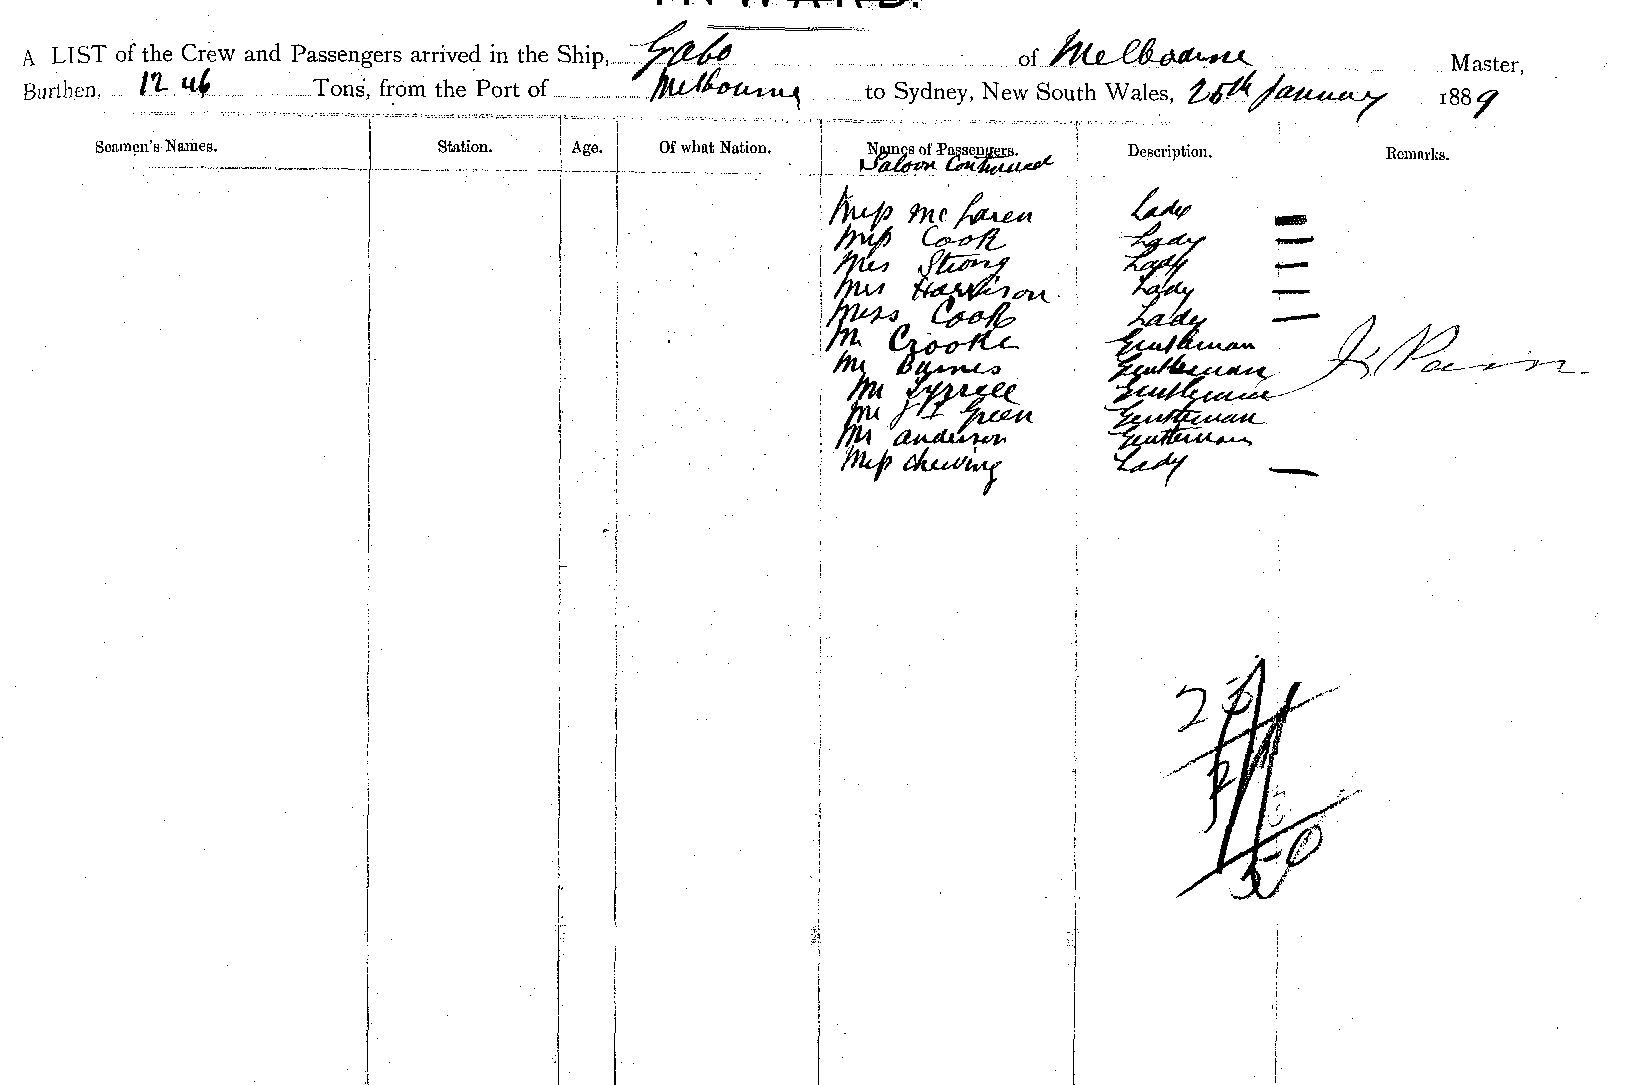 INWARD.
A LIST of the Crew and Passengers arrived in the Ship, Gabo of Melbourne Master,
Burthen, 1246 Tons, from the Port of Melbourne to Sydney, New South Wales, 25th January 1889
Seamen's Names. Station. Age. Of what Nation. Names of Passengers. Description. Remarks.
Saloon Continued
Miss McLaren Lady
Miss Cook Lady
Mrs Strong Lady
Mrs Harrison Lady
Miss Cook Lady
Mr Crooke Gentleman
Mr Barnes Gentleman
Mr Tyrrell Gentleman
Mr Green Gentleman
Mr Anderson Gentleman
Miss Chewing Lady